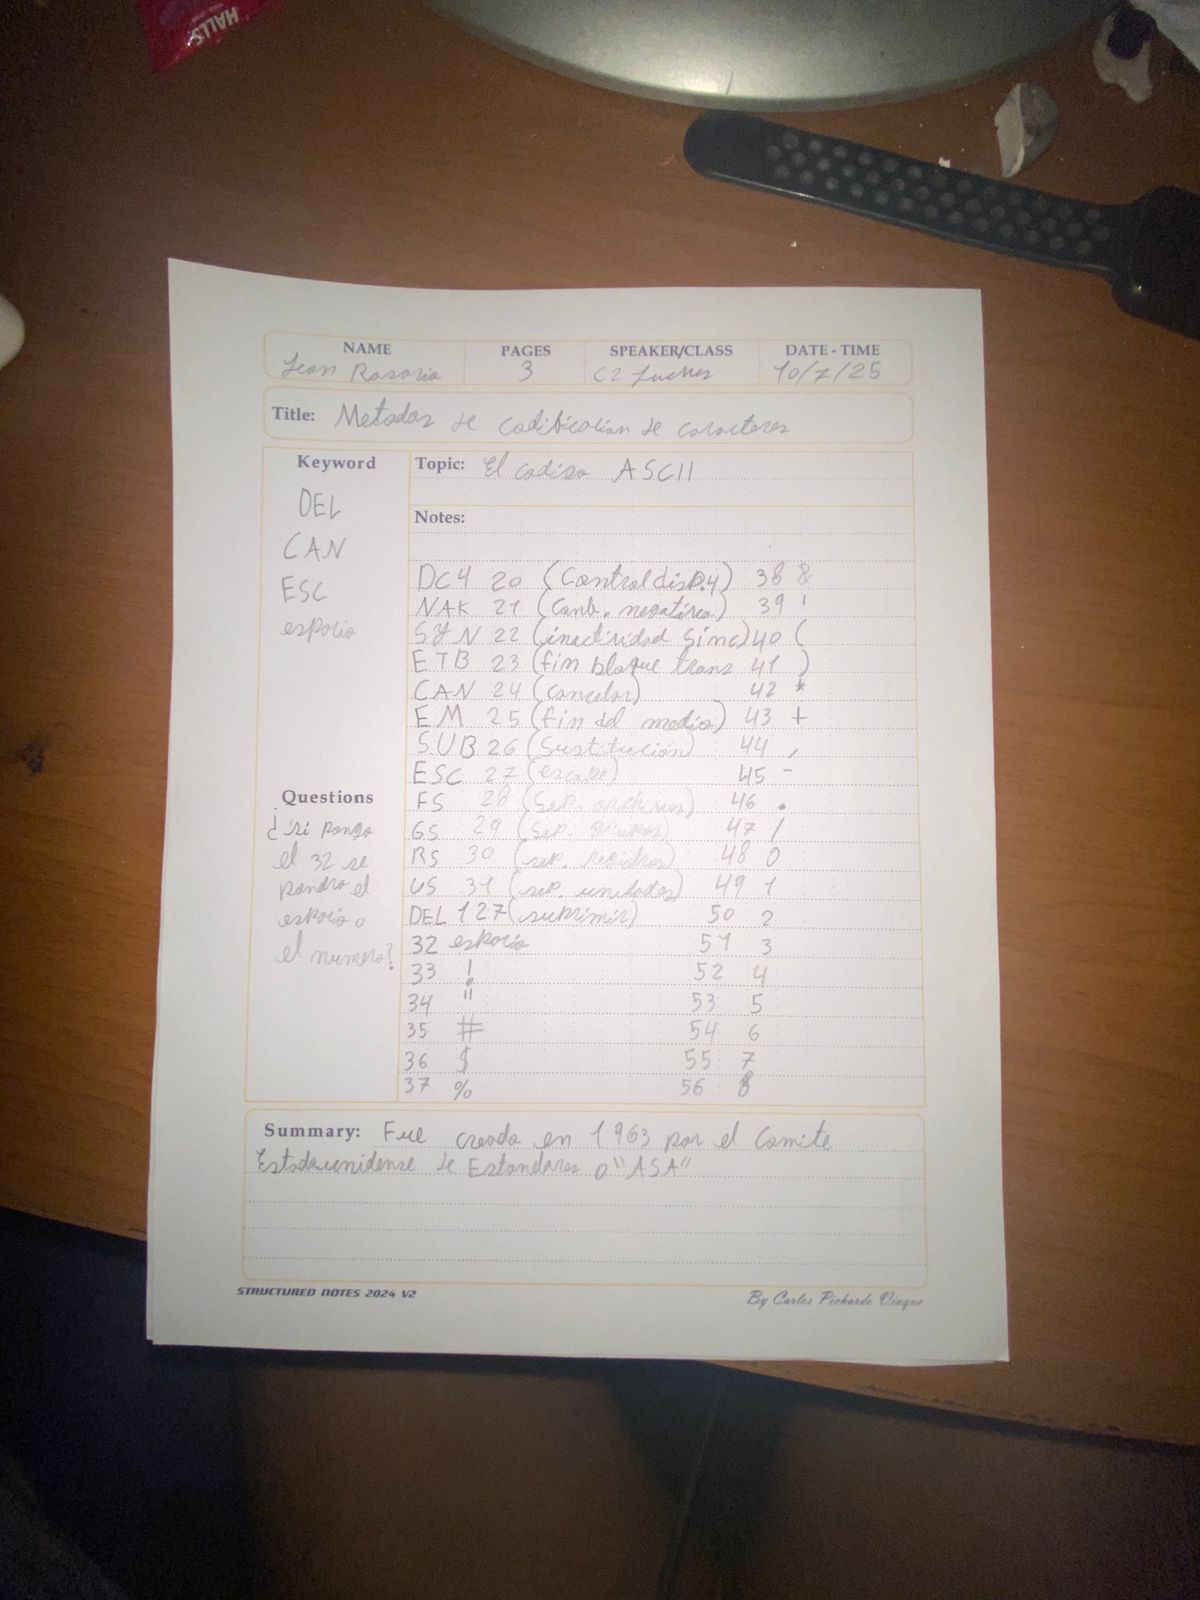 HALLS
NAME PAGES SPEAKER/CLASS DATE - TIME
Jean Rosario 3 C2 10/7/25
Title: Metodos de codificacion de caracteres
Keyword
DEL
CAN
ESC
espacio
Topic: El codigo ASCII
Notes:
DC4 20 (Control disp.4) 38 &
NAK 21 (Conf. negativa) 39 '
SYN 22 (inactividad sinc) 40 (
ETB 23 (fin bloque trans 41 )
CAN 24 (cancelar) 42 *
EM 25 (fin del medio) 43 +
SUB 26 (sustitución) 44 ,
ESC 27 (escape) 45 -
FS 28 (sep. archivos) 46 .
GS 29 (sep. grupos) 47 /
RS 30 (sep. registros) 48 0
US 31 (sep. unidades) 49 1
DEL 127 (suprimir) 50 2
32 espacio 51 3
33 ! 52 4
34 " 53 5
35 # 54 6
36 $ 55 7
37 % 56 8
Questions
¿si pongo
el 32 se
pondra el
espacio o
el numero?
Summary: Fue creado en 1963 por el Comite
Estadounidense de Estandares o "ASA"
STRUCTURED NOTES 2024 V2
By Carlos Pichardo Viuque